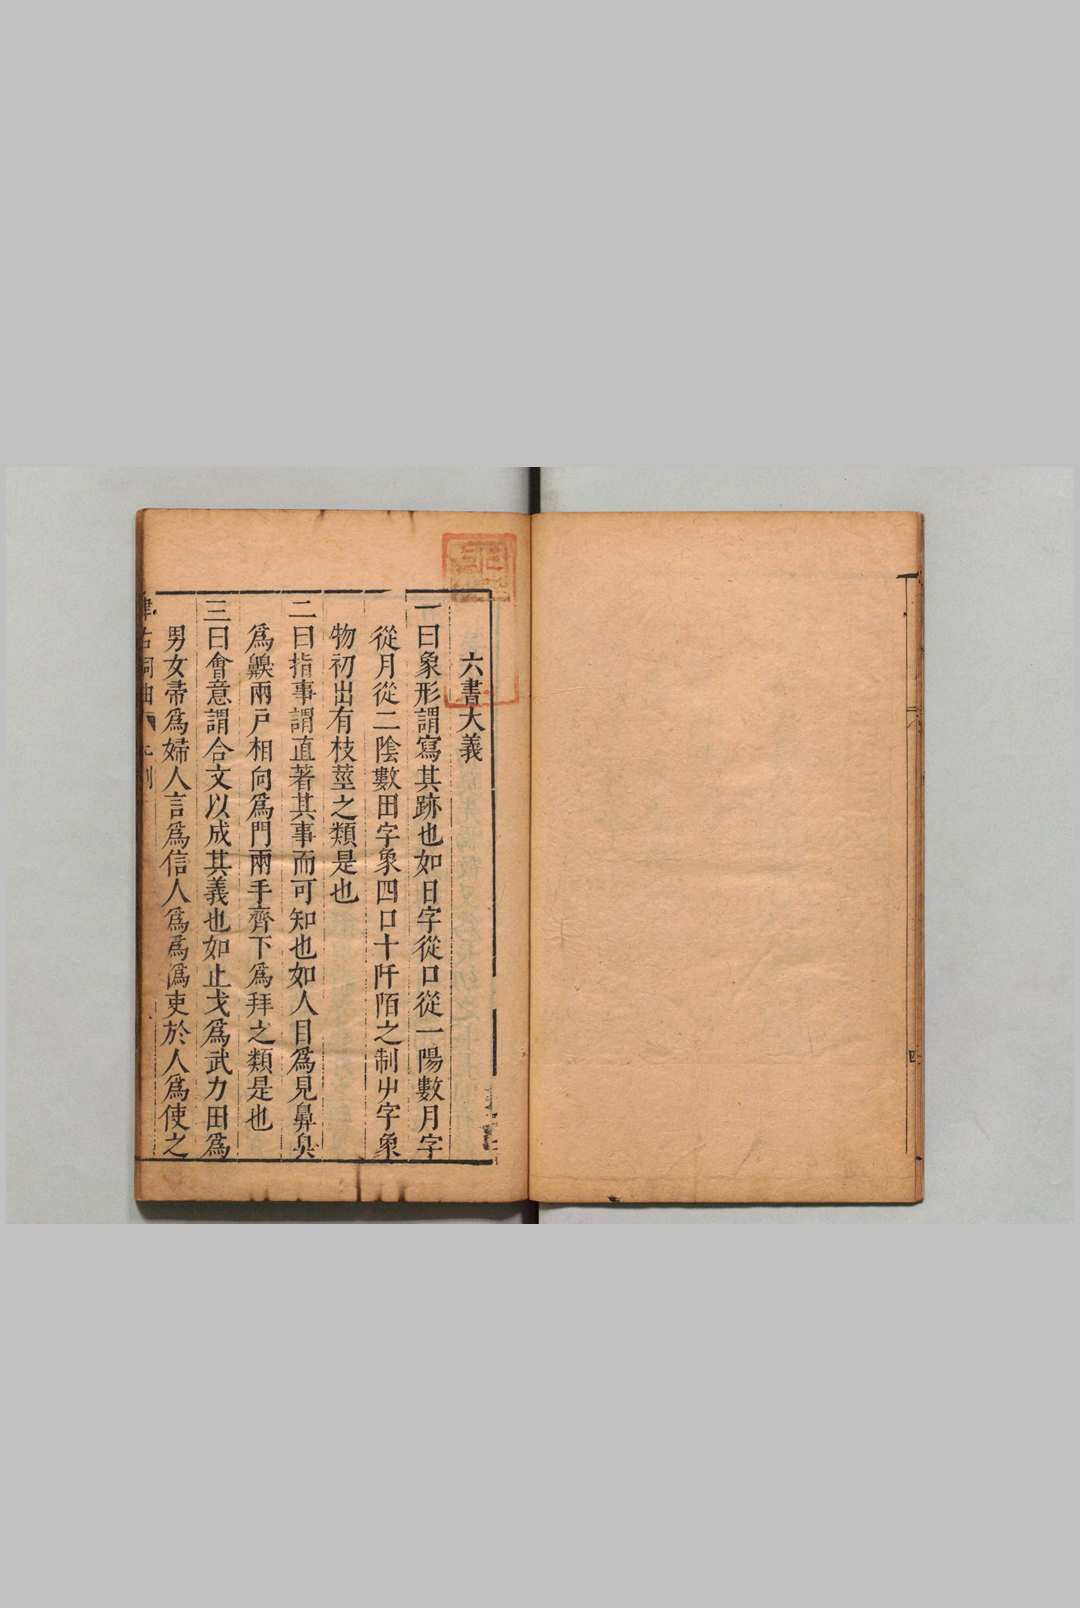 六書大義
一曰象形謂寫其跡也如日字從口從一陽數月字
從月從二陰數田字象四口十阡陌之制屮字象
物初出有枝莖之類是也
二曰指事謂直著其事而可知也如人目爲見鼻臭
爲齅兩戶相向爲門兩手齊下爲拜之類是也
三曰會意謂合文以成其義也如止戈爲武力田爲
男女帚爲婦人言爲信人爲爲僞吏於人爲使之
四